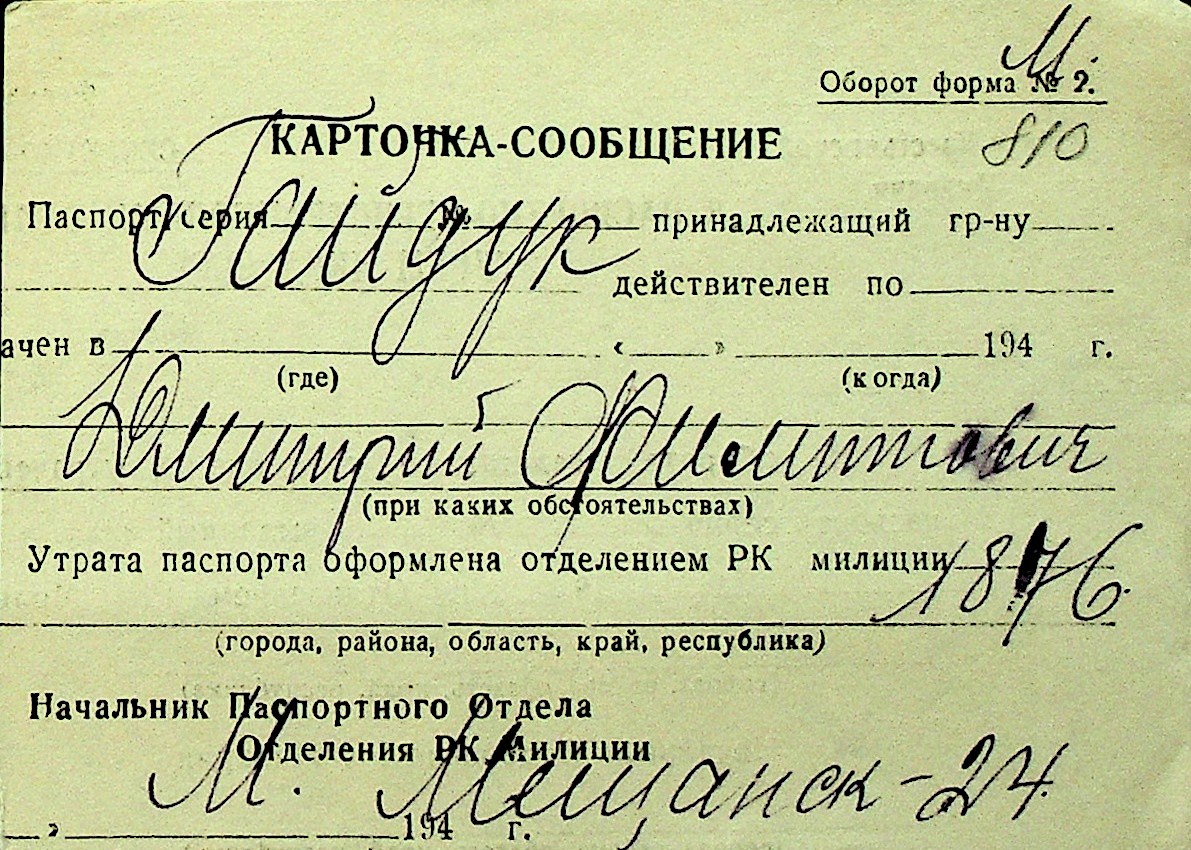 М.
Оборот форма № 2.
810
КАРТОЧКА-СООБЩЕНИЕ
Паспорт серия № принадлежащий гр-ну
Гайдук
действителен по
ачен в « » 194 г.
(где) (когда)
Дмитрий Филиппович
(при каких обстоятельствах)
Утрата паспорта оформлена отделением РК милиции
1876.
(города, района, область, край, республика)
Начальник Паспортного Отдела
Отделения РК Милиции
М. Мещанск-24.
» 194 г.